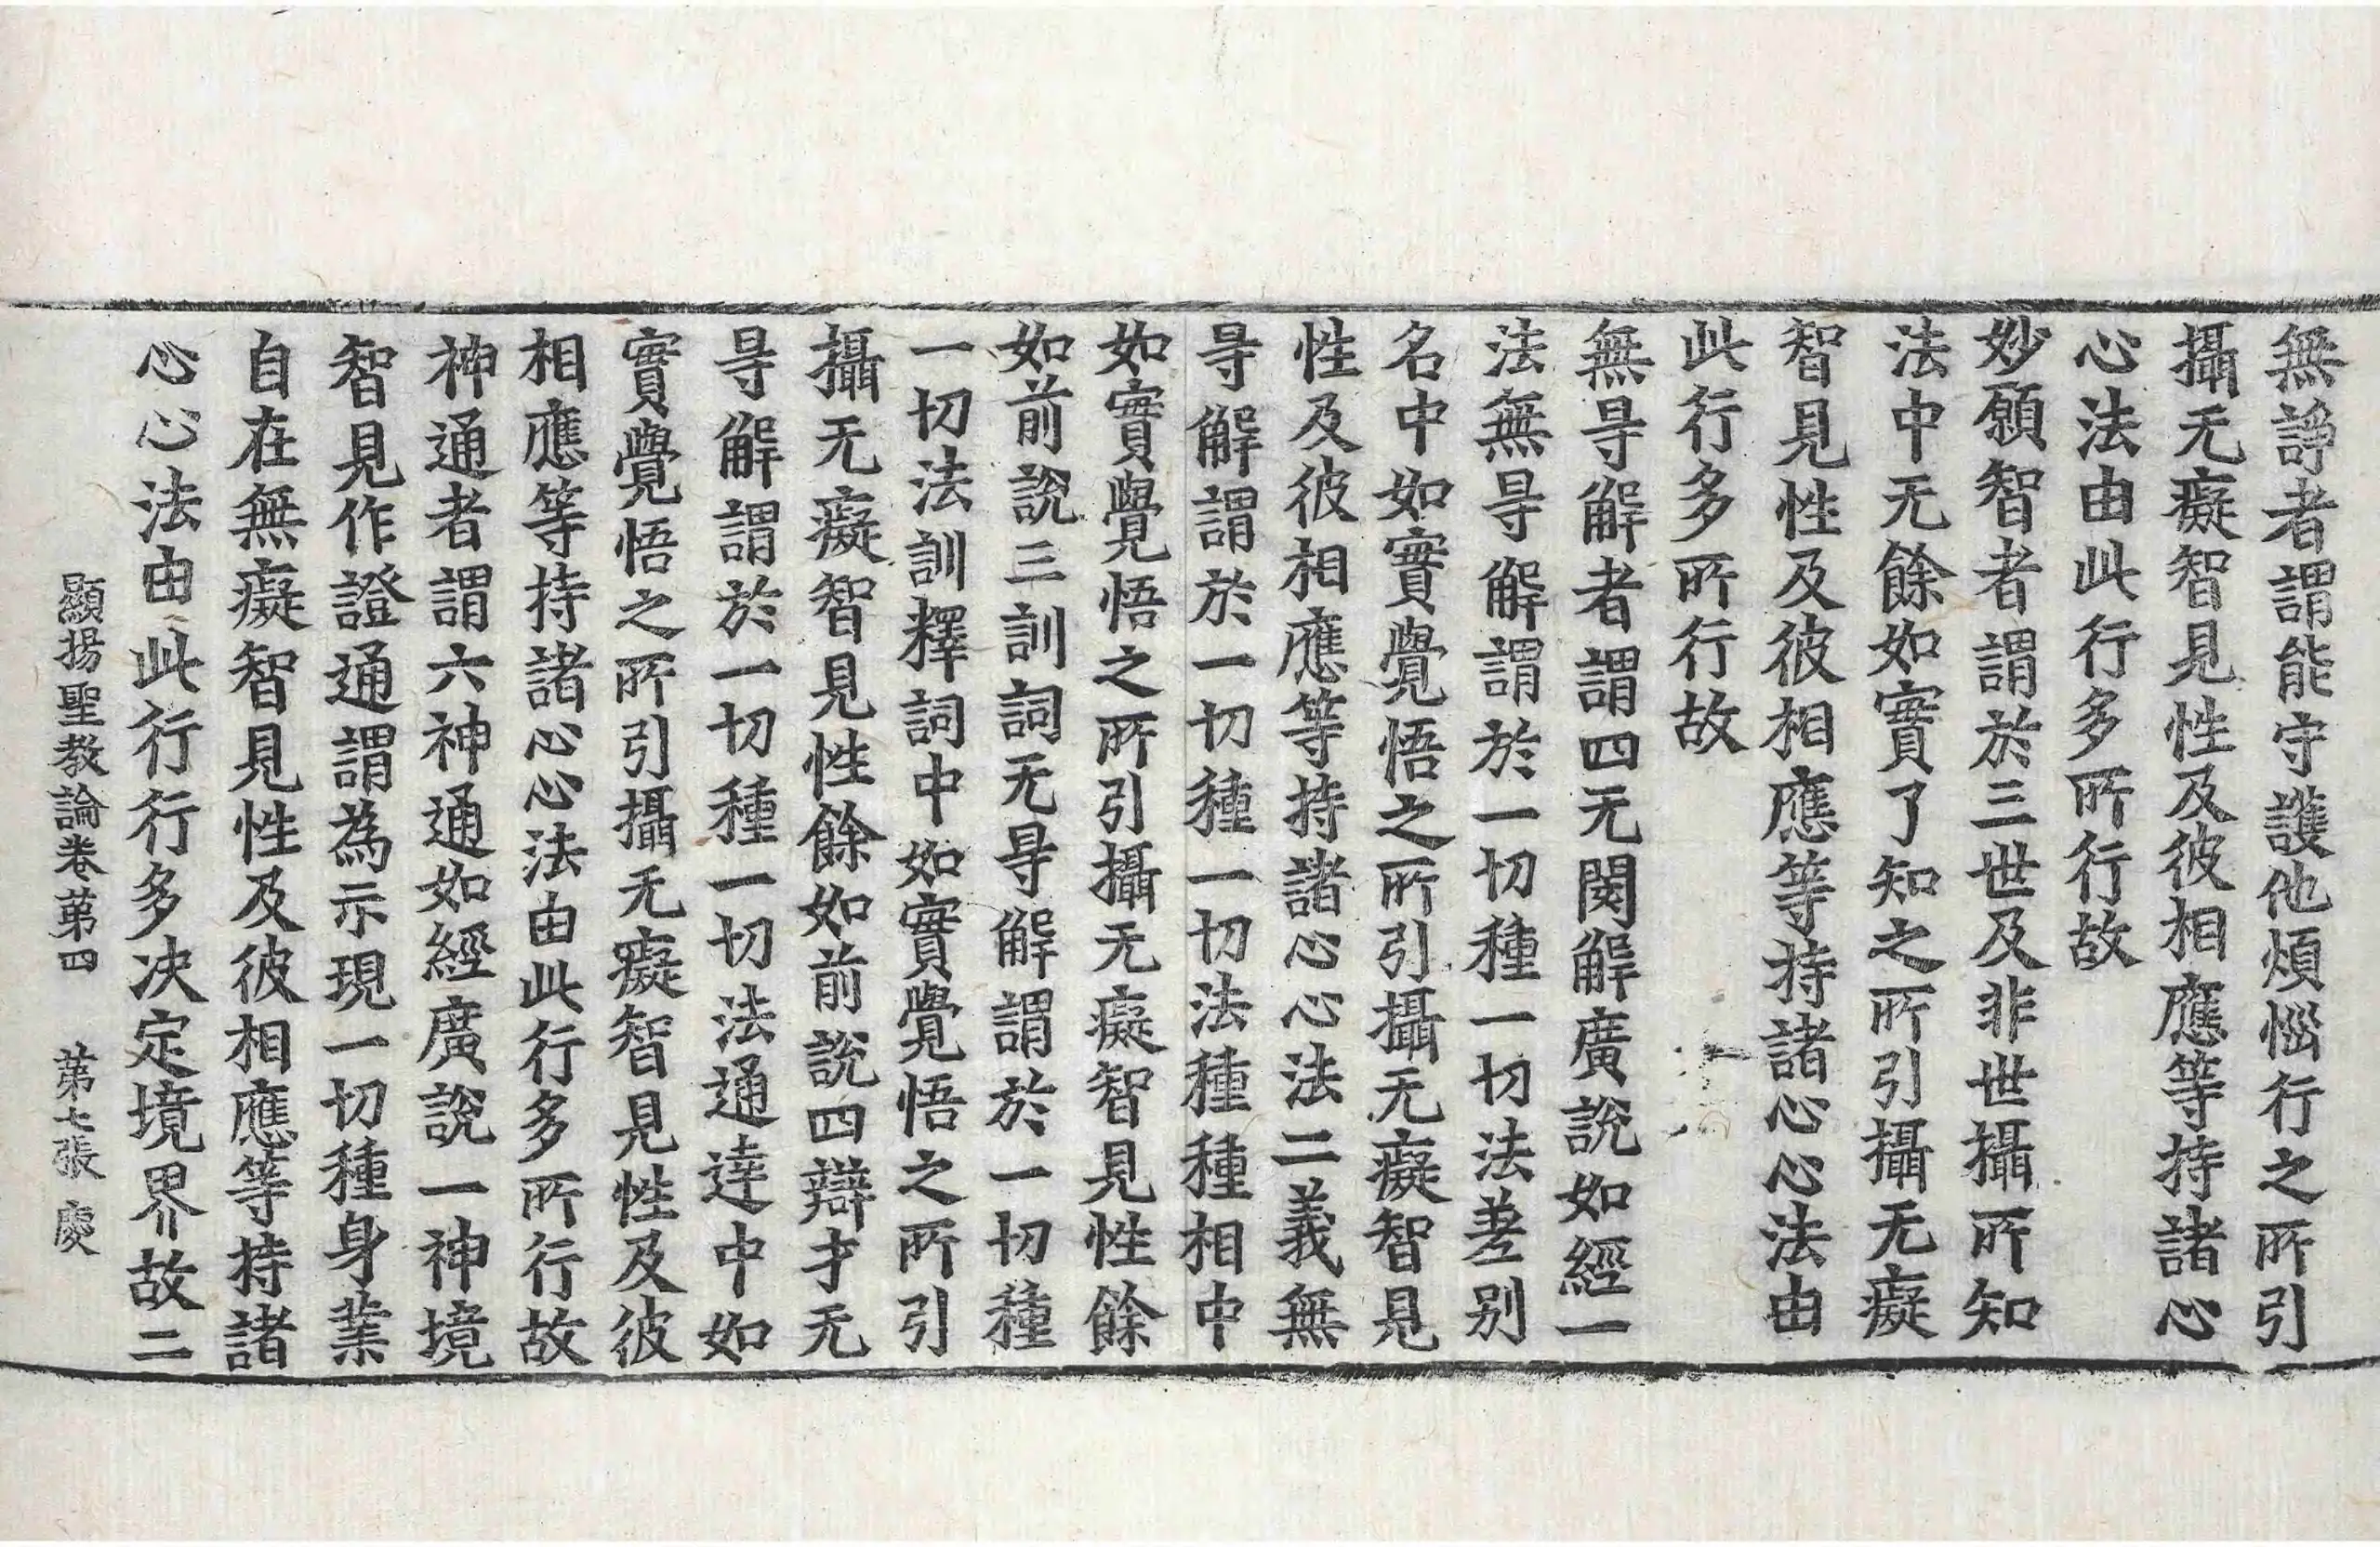 無諍者謂能守護他煩惱行之所引
攝无癡智見性及彼相應等持諸心
心法由此行多所行故
妙願智者謂於三世及非世攝所知
法中无餘如實了知之所引攝无癡
智見性及彼相應等持諸心心法由
此行多所行故
無㝵解者謂四无閡解廣說如經一
法無㝵解謂於一切種一切法差别
名中如實覺悟之所引攝无癡智見
性及彼相應等持諸心心法二義無
㝵解謂於一切種一切法種種相中
如實覺悟之所引攝无癡智見性餘
如前說三訓詞无㝵解謂於一切種
一切法訓釋詞中如實覺悟之所引
攝无癡智見性餘如前說四辯才无
㝵解謂於一切種一切法通達中如
實覺悟之所引攝无癡智見性及彼
相應等持諸心心法由此行多所行故
神通者謂六神通如經廣說一神境
智見作證通謂為示現一切種身業
自在無癡智見性及彼相應等持諸
心心法由此行行多决定境界故二
顯揚聖教論卷第四　第七張　慶